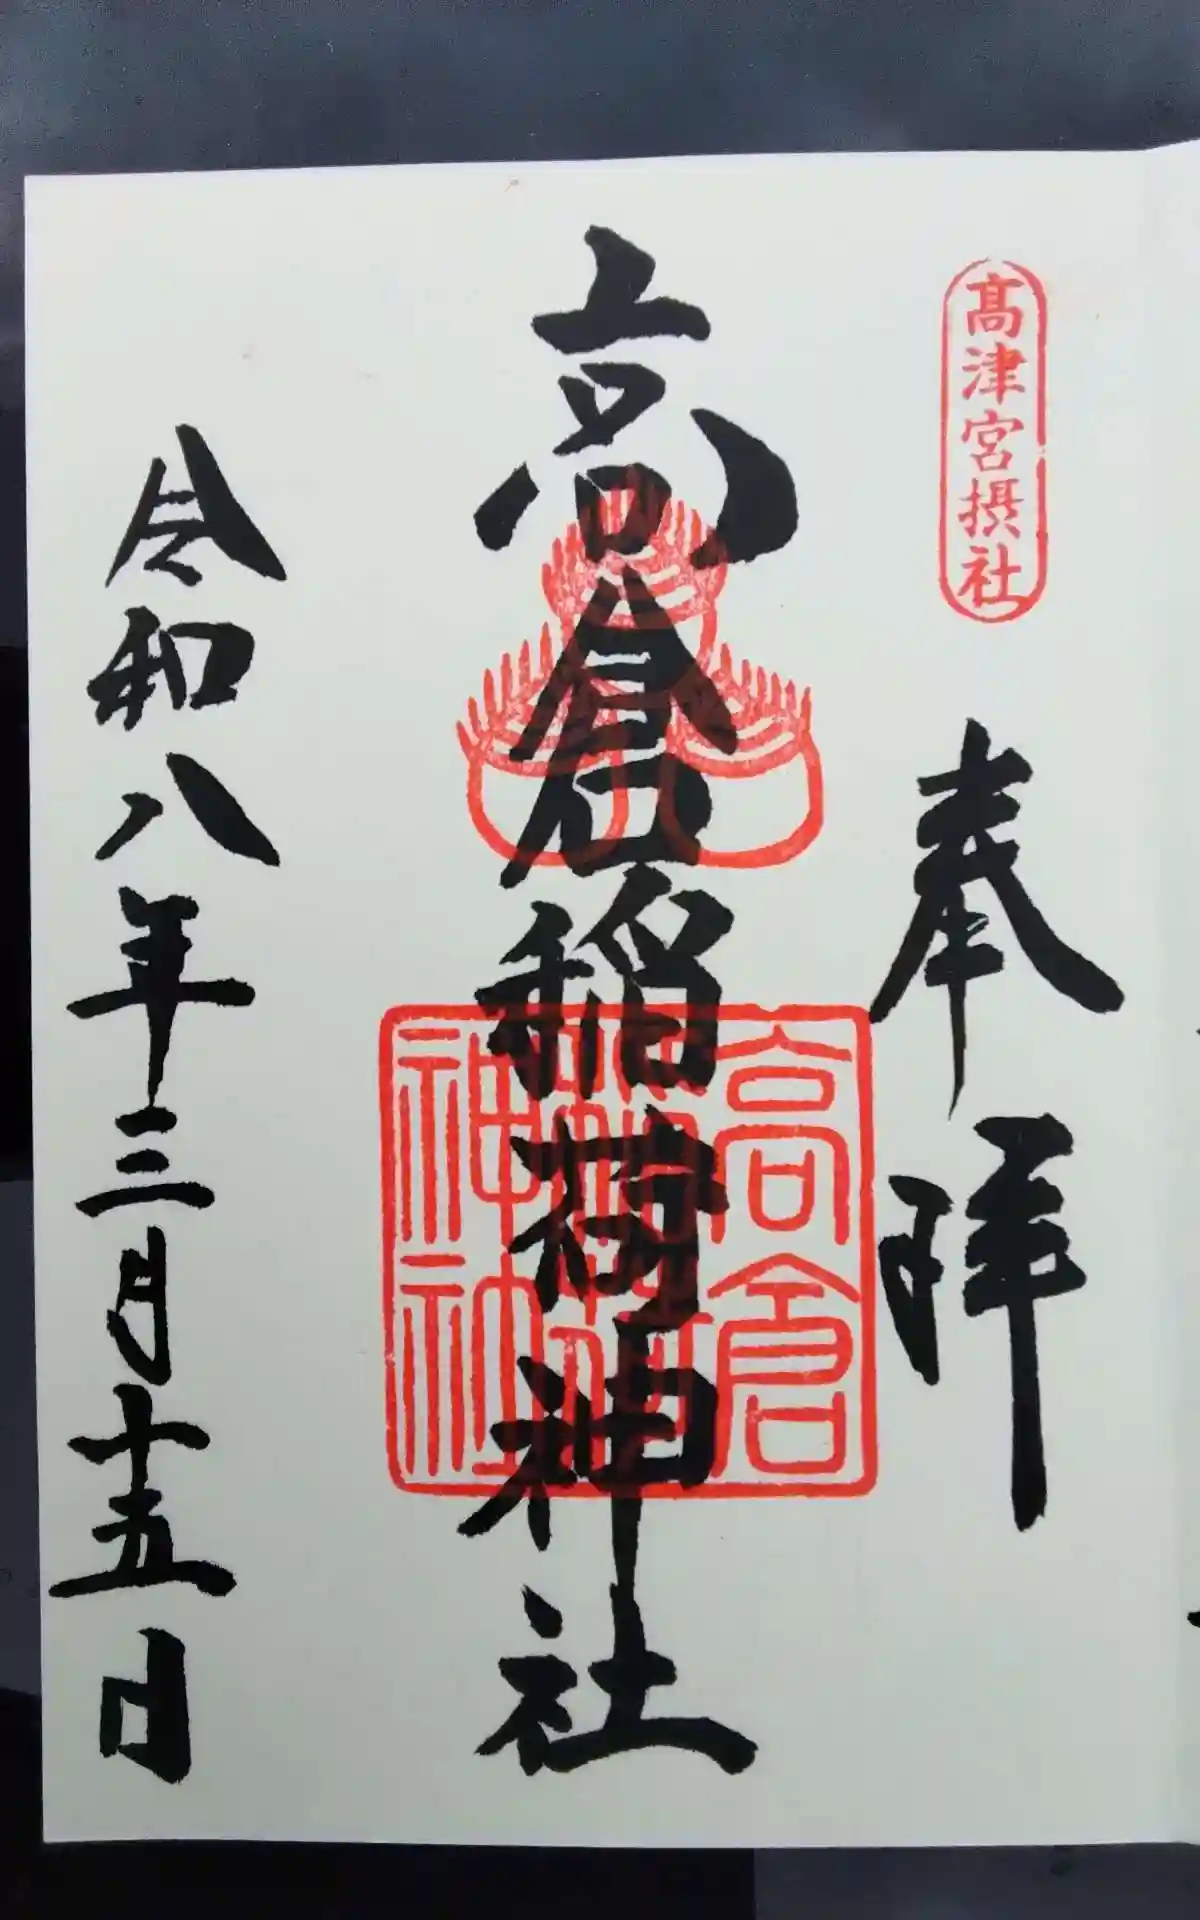 髙津宮摂社
奉拝
高倉稲荷神社
高倉
稲荷
神社
令和八年三月十五日